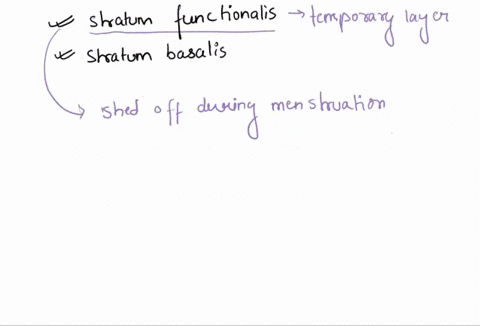 stratum functionalis → temporary layer
stratum basalis
shed off during menstruation